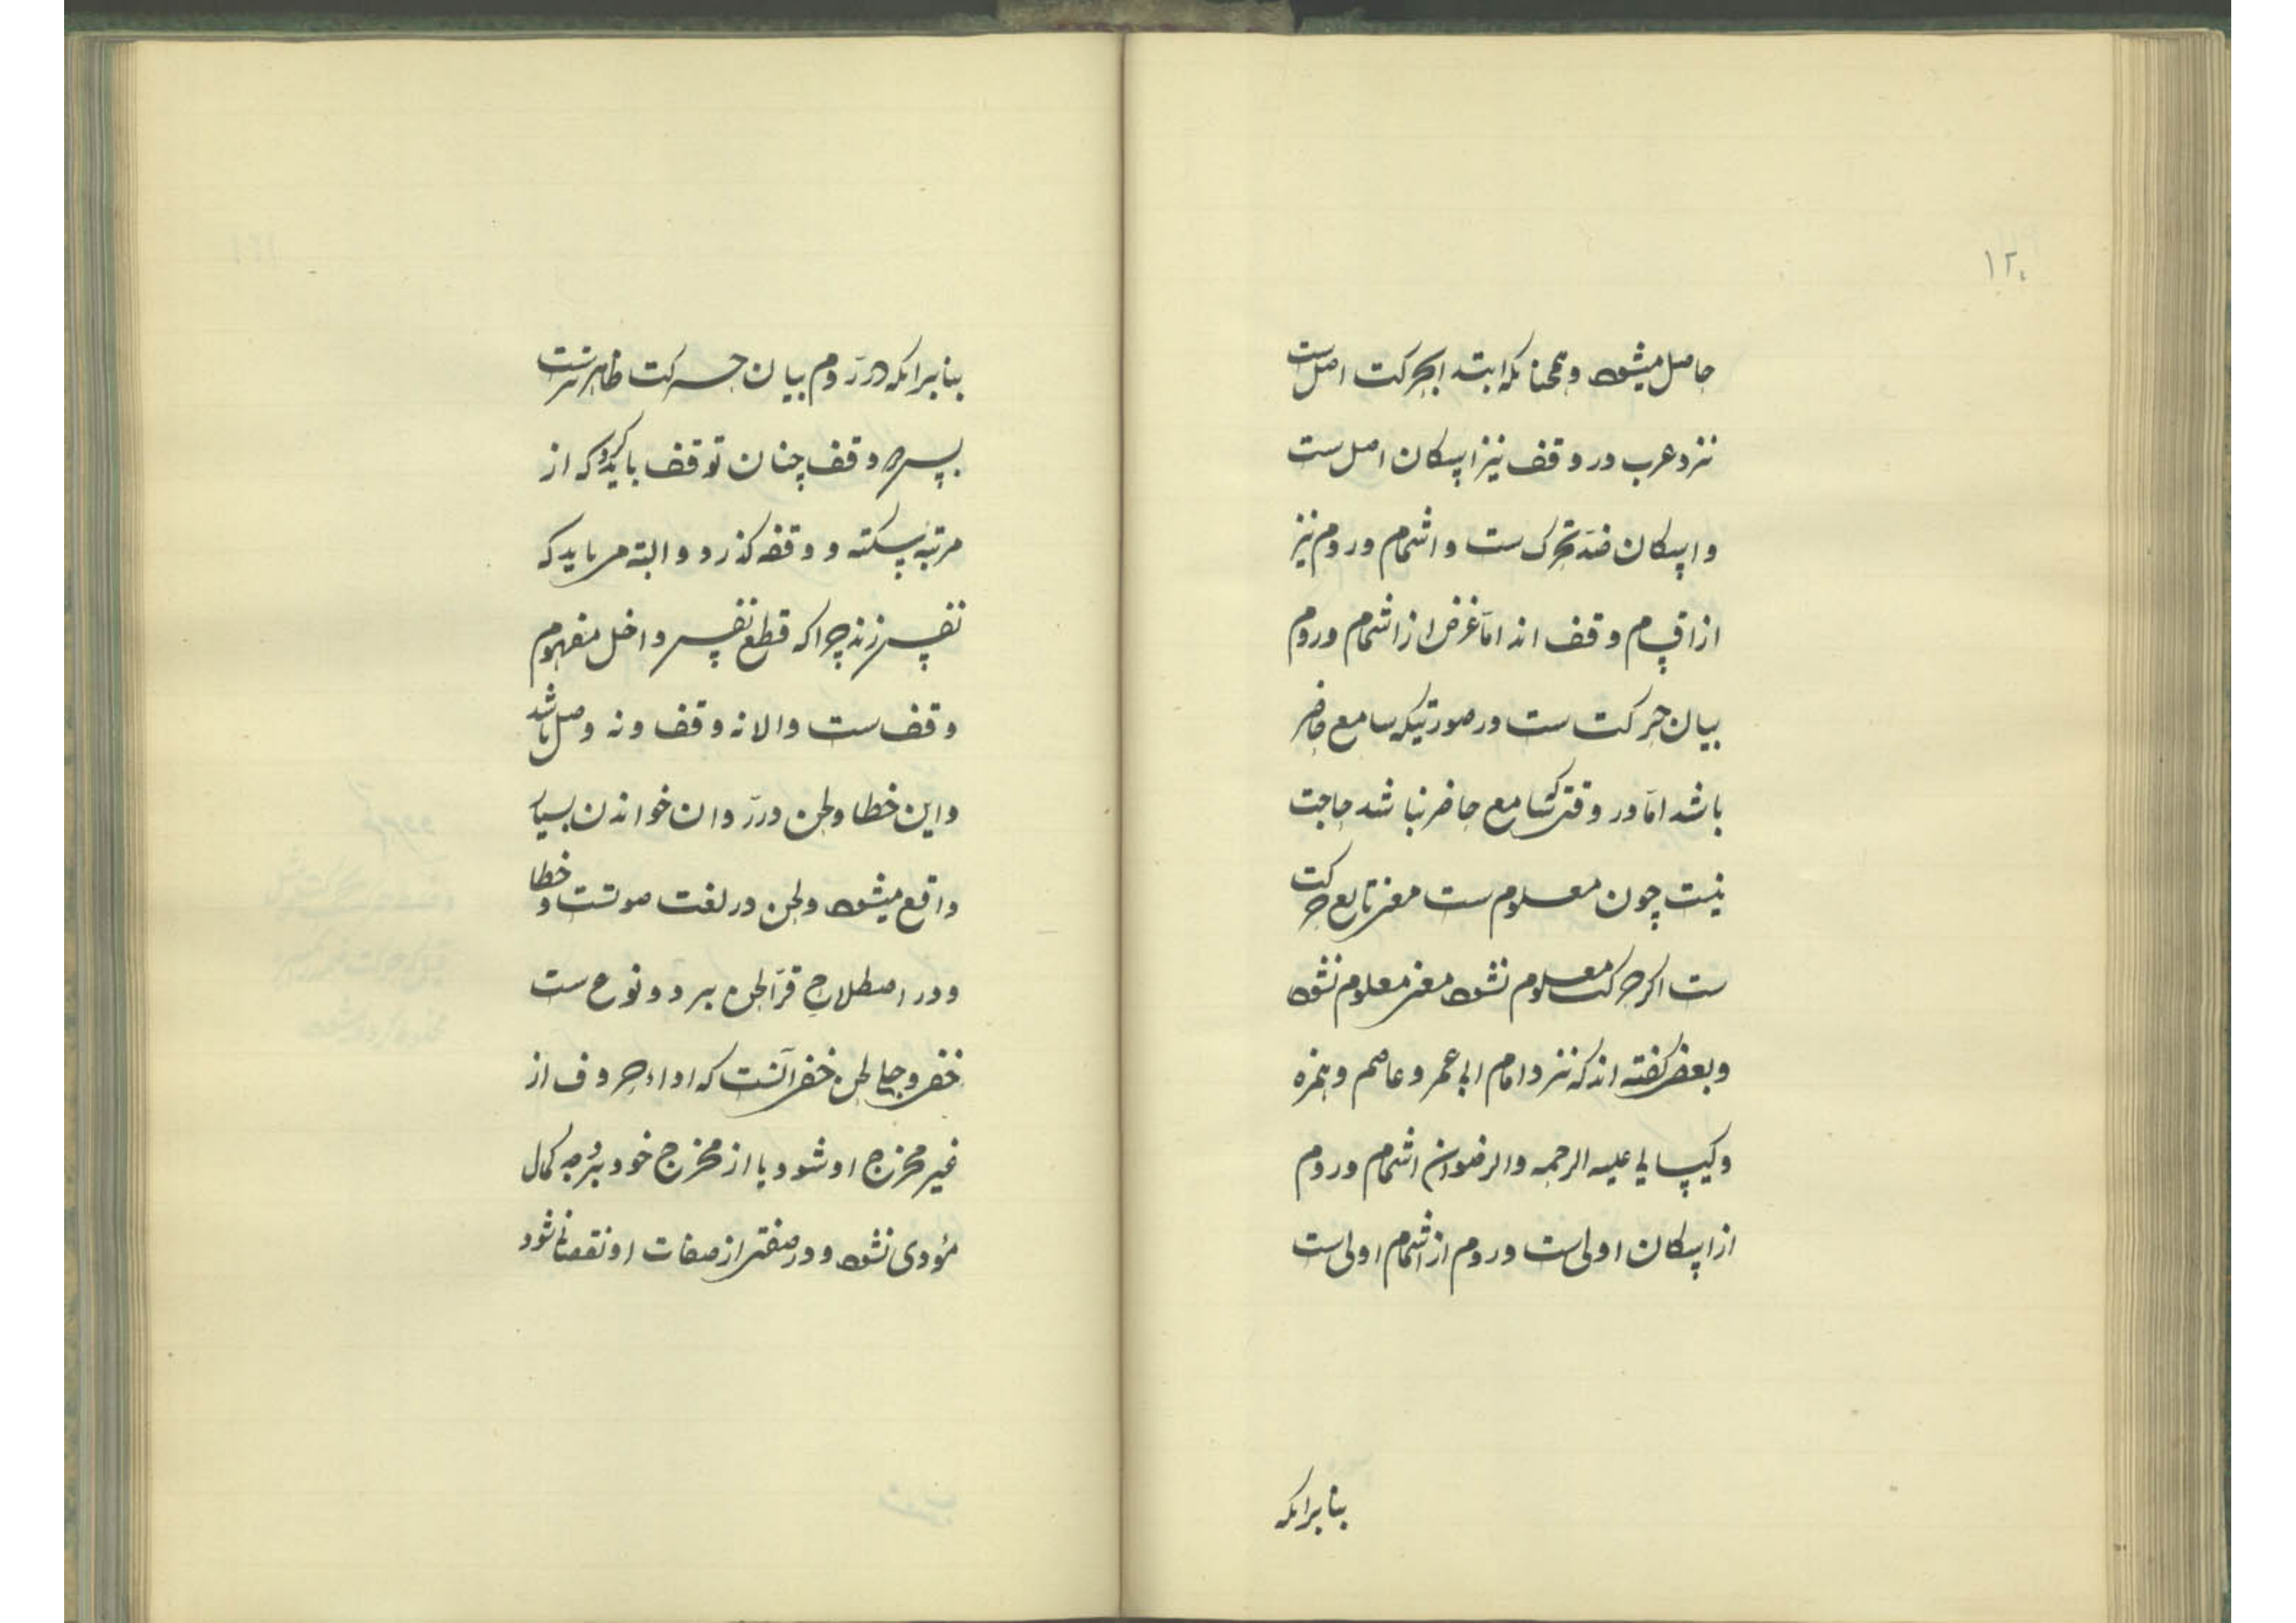 ۱۲۰
حاصل میشود و همچنانکه ابتدا بحرکت اصل ست
نزد عرب در وقف نیز اسکان اصل ست
و اسکان ضد تحرک ست و اشمام و روم نیز
از اقسام وقف اند امّا غرض از اشمام و روم
بیان حرکت ست در صورتیکه سامع حاضر
باشد امّا در وقتی که سامع حاضر نباشد حاجت
نیست چون معلوم ست معنی تابع حرکت
ست اگر حرکت معلوم نشود معنی معلوم نشود
و بعضی گفته اند که نزد امام ابی عمرو عاصم و همزه
و کسایی علیه الرحمه و الرضوان اشمام و روم
از اسکان اولی ست و روم از اشمام اولی ست
بنابرانکه
بنابرانکه در رَوم بیان حرکت ظاهرترست
پس در وقف چنان توقف باید کرد که از
مرتبه سکته و وقفه گذرد و البته می باید که
نفس زند چرا که قطع نفس داخل مفهوم
وقف ست والا نه وقف و نه وصل باشد
و این خطا و لحن در رَوان خواندن بسیار
واقع میشود و لحن در لغت صوتست و خطا
و در اصطلاح قرّا لحن بر دو نوع ست
خفی و جلی لحن خفی آنست که اداء حروف از
غیر مخرج او شود یا از مخرج خود بدرجه کمال
مؤدی نشود و در صفتی از صفات او نقصان شود